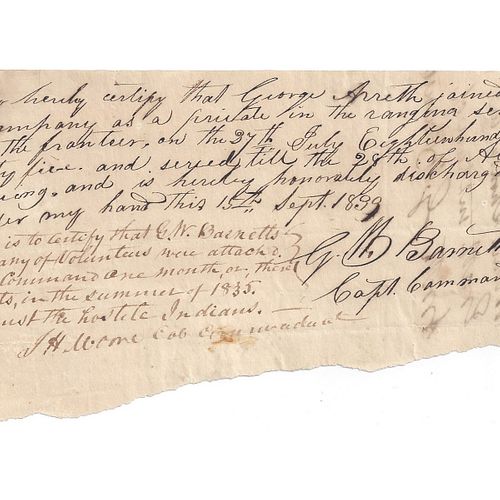 hereby certify that George Arreth joined
ompany as a private in the ranging se
the frontier, on the 27th July Eighteenhun
ty five and served till the 28th of A
ing, and is hereby honorably discharg
der my hand this 15th Sept. 1839
G W Barnett
Capt. Comman
is to certify that G. W. Barnetts
any of Volunteers were attach'd
Command one month or there
ts, in the summer of 1835.
nst the hostile Indians.
J H Moore Col Commandant